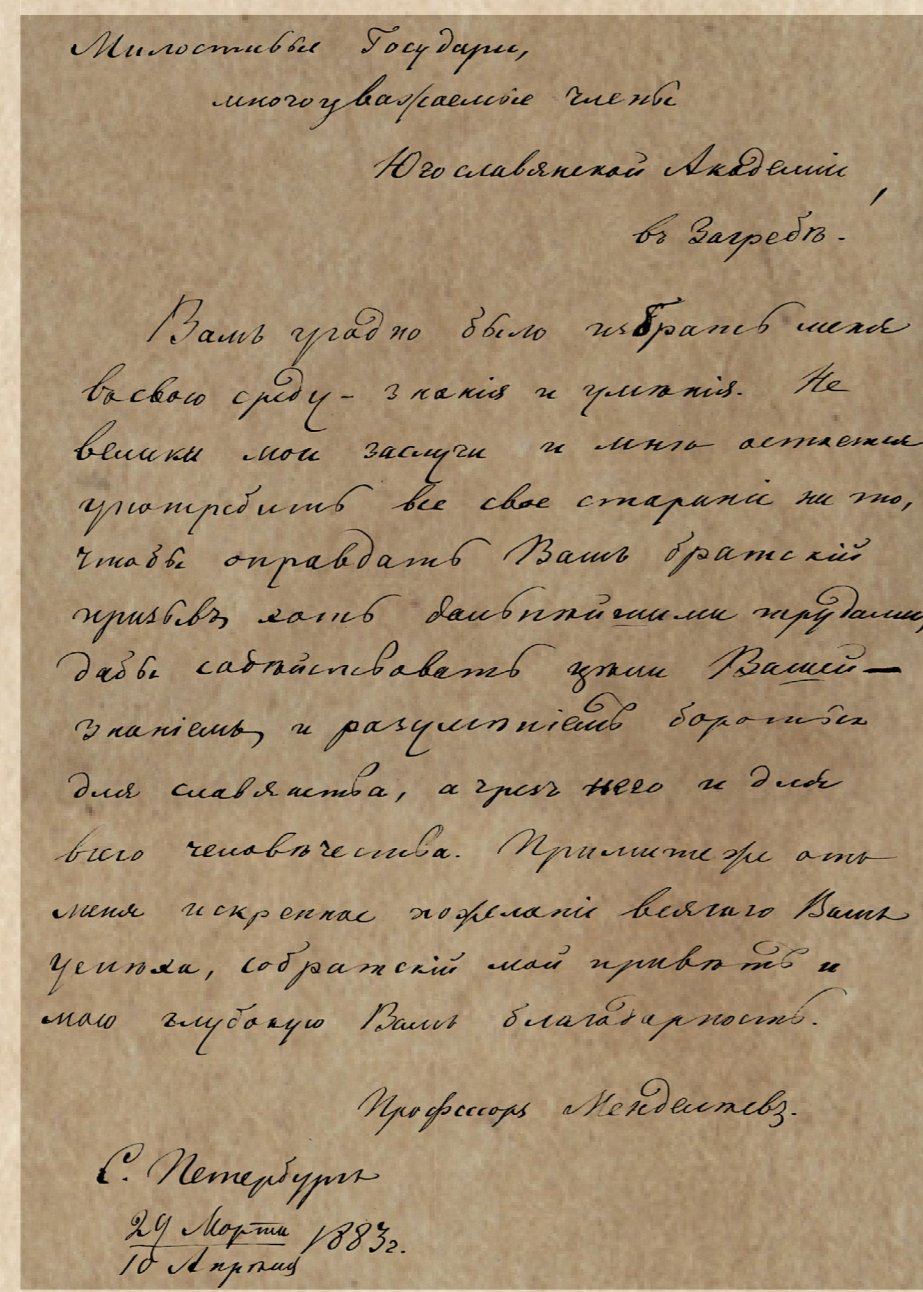 Милостивые Государи,
многоуважаемые члены
Югославянской Академіи,
въ Загребѣ.
Вамъ угодно было избрать меня
въ свою среду - знанія и умѣнія. Не
велики мои заслуги и мнѣ остается
употребить все свое стараніе на то,
чтобы оправдать Вашъ братскій
призывъ, хоть дальнѣйшими трудами,
дабы содѣйствовать цѣли Вашей —
знаніемъ, и разумѣніемъ бороться
для славянства, а чрезъ него и для
всего человѣчества. Примите же отъ
меня искреннее пожеланіе всякаго Вамъ
успѣха, собратскій мой привѣтъ и
мою глубокую Вамъ благодарность.
Профессоръ Менделѣевъ.
С. Петербургъ
29 Марта
10 Апрѣля 1883 г.